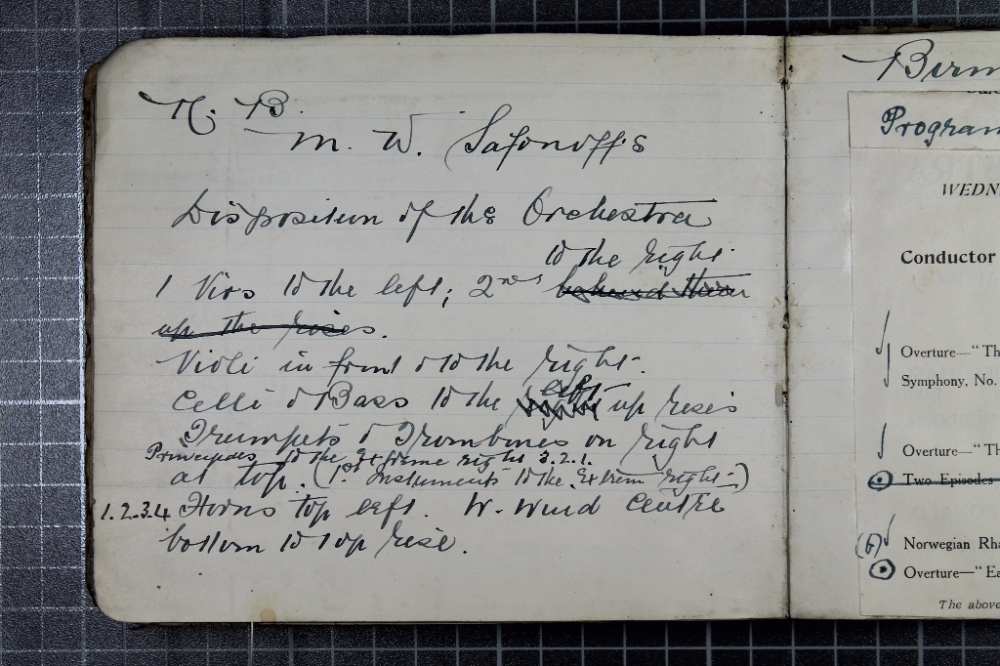 N. B.
M. W. Safonoff's
Disposition of the Orchestra
to the right
1 Vios to the left; 2nds behind them
up the rises.
Violi in front & to the right.
Celli & Bass to the right left up rises
Trumpets & Trombones on right
Principles to the Extreme right 3.2.1.
at top. (1st Instruments to the Extreme right)
1.2.3.4 Horns top left. W. Wind Centre
bottom to top rise.
Birm
Program
WEDN
Conductor
Overture—"Th
Symphony, No.
Overture—"Th
Two Episodes
(6) Norwegian Rha
Overture—"Ea
The above